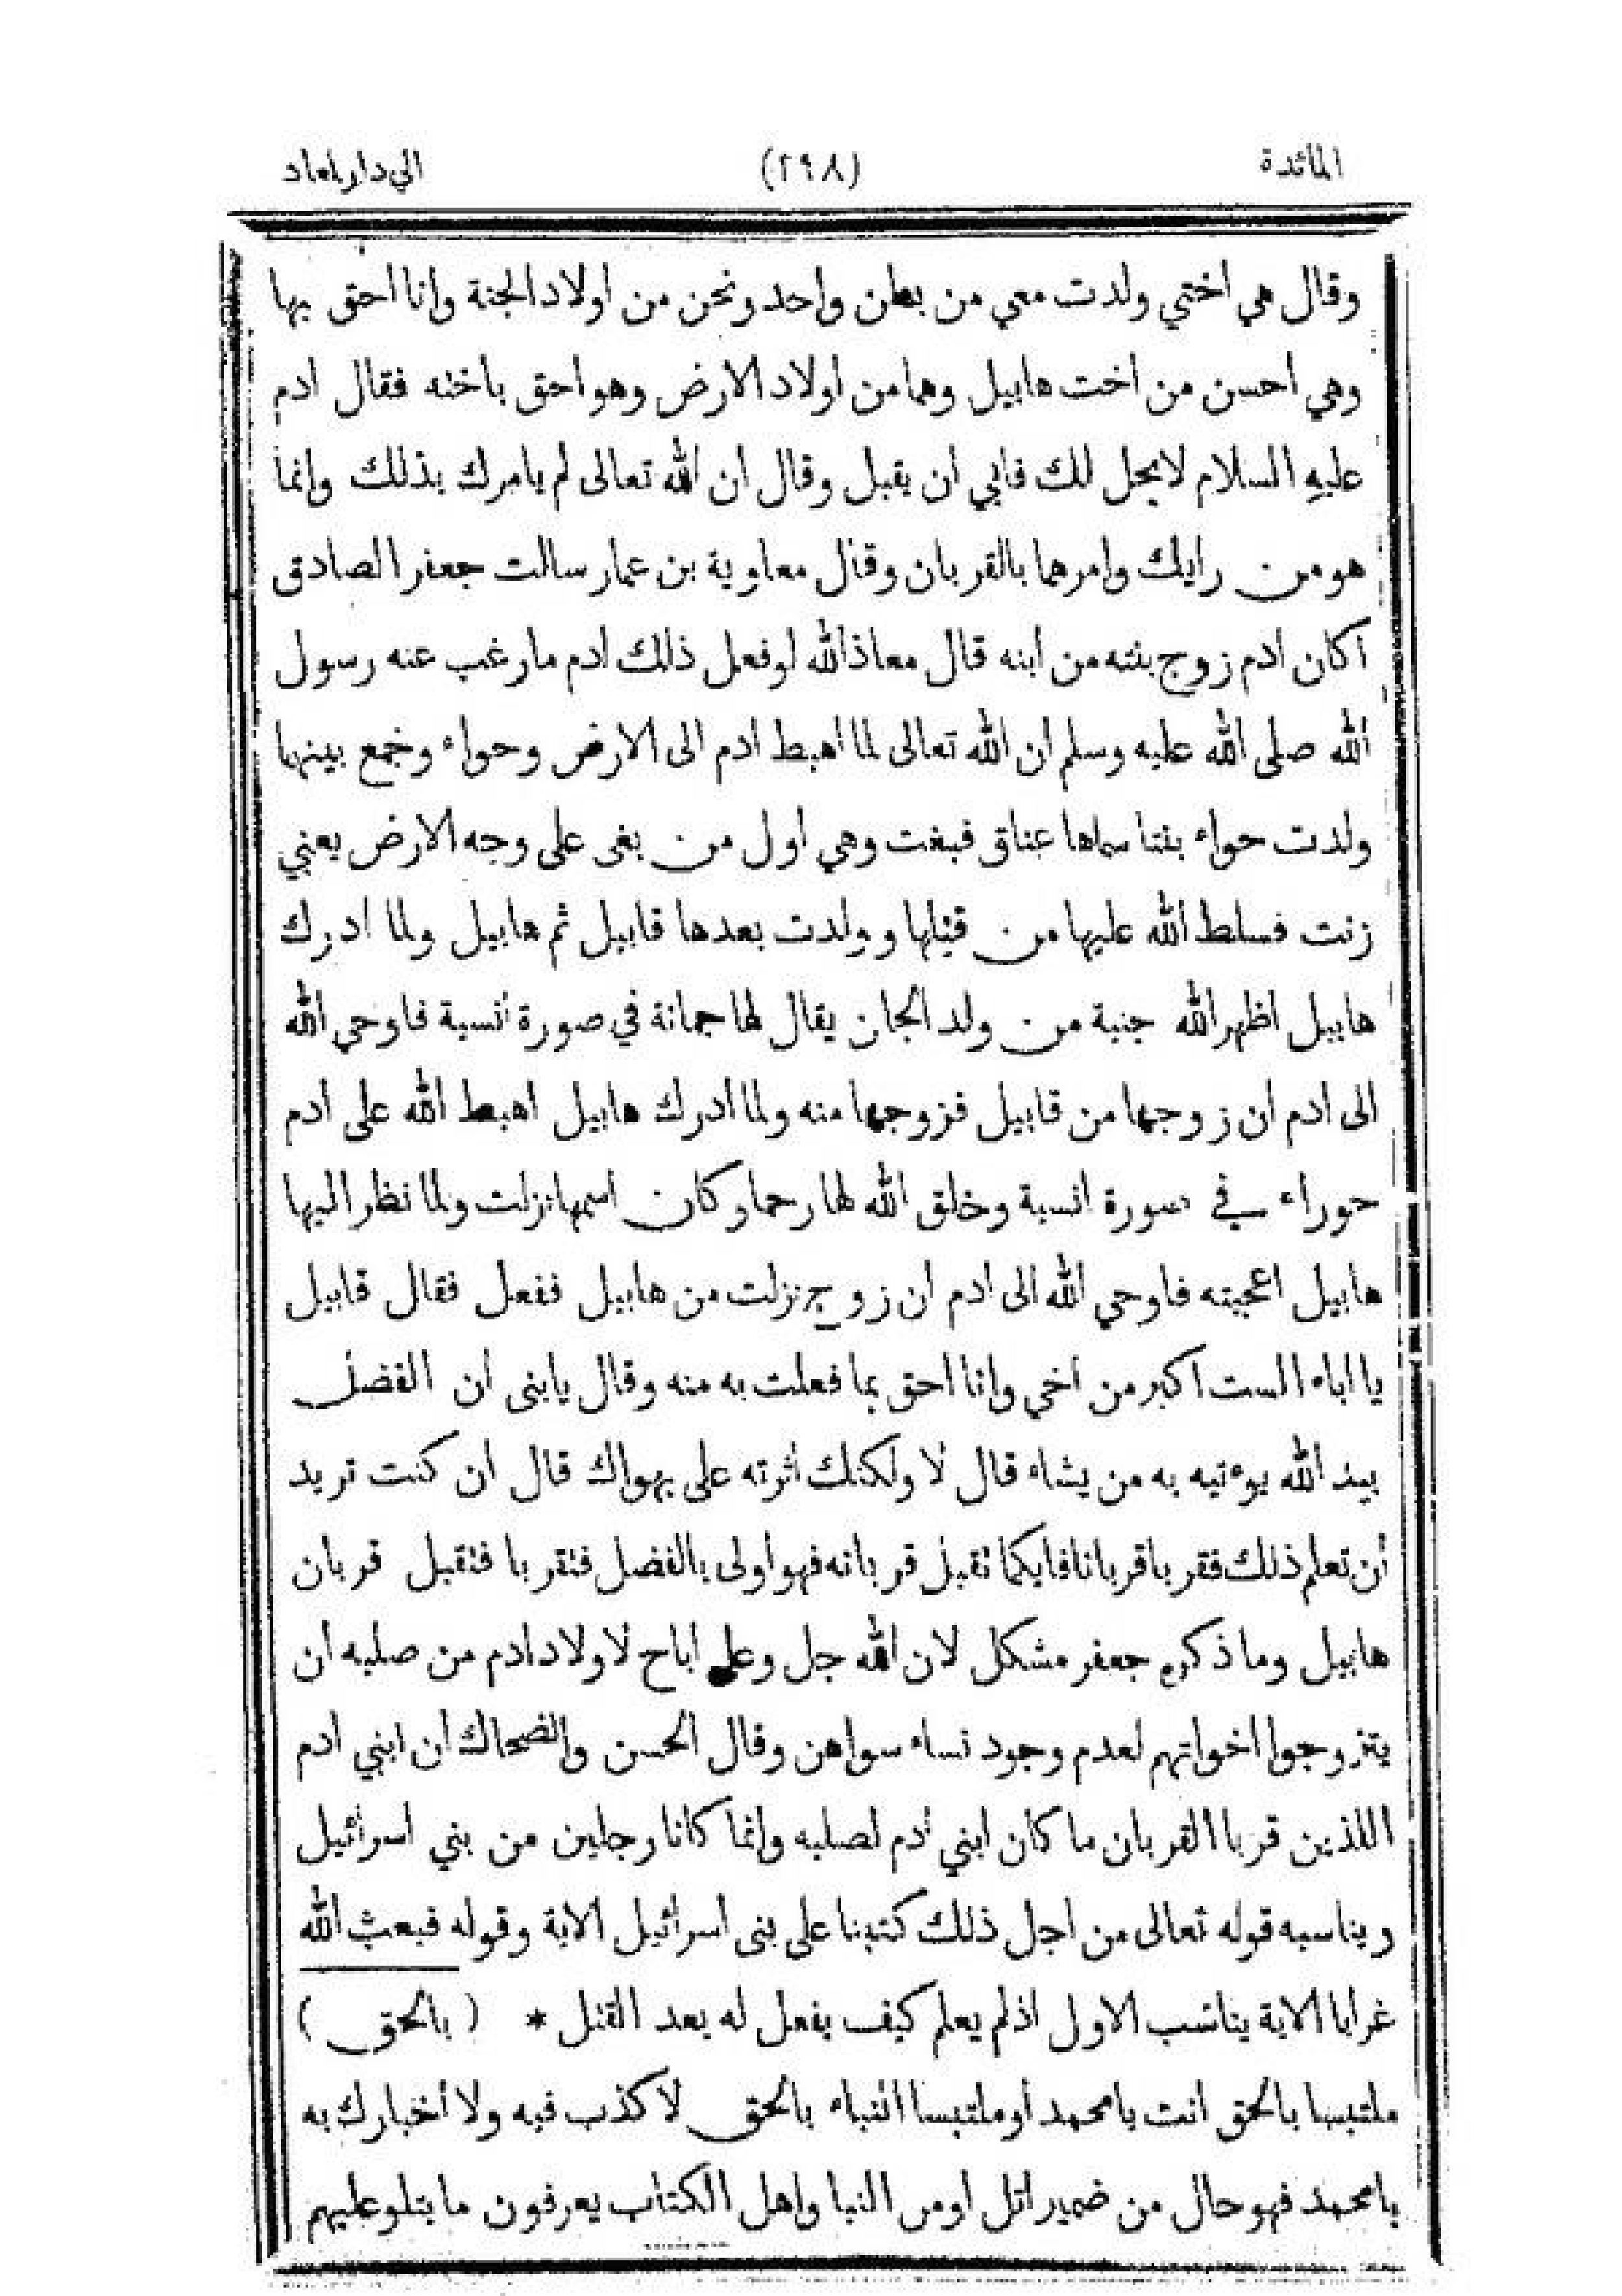 المائدة (٢٩٨) الي دار المعاد
وقال هي اختي ولدت معي من بطن واحد ونحن من اولاد الجنة وانا احق بها
وهي احسن من اخت هابيل وهما من اولاد الارض وهو احق باخته فقال ادم
عليه السلام لا يحل لك فابي ان يقبل وقال ان الله تعالى لم يامرك بذلك وانما
هو من رايك وامرهما بالقربان وقال معاوية بن عمار سالت جعفر الصادق
اكان ادم زوج بنته من ابنه قال معاذ الله لو فعل ذلك ادم ما رغب عنه رسول
الله صلى الله عليه وسلم ان الله تعالى لما اهبط ادم الى الارض وحواء وجمع بينهما
ولدت حواء بنتا سماها عناق فبغت وهي اول من بغى على وجه الارض يعني
زنت فسلط الله عليها من قتلها وولدت بعدها قابيل ثم هابيل ولما ادرك
هابيل اظهر الله جنية من ولد الجان يقال لها جمانة في صورة انسية فاوحي الله
الى ادم ان زوجها من قابيل فزوجها منه ولما ادرك هابيل اهبط الله على ادم
حوراء في صورة انسية وخلق الله لها رحما وكان اسمها نزلت ولما نظر اليها
هابيل اعجبته فاوحي الله الى ادم ان زوج نزلت من هابيل ففعل فقال قابيل
يا اباه الست اكبر من اخي وانا احق بما فعلت به منه وقال يابنى ان الفضل
بيد الله يوءتيه به من يشاء قال لا ولكنك اثرته على بهواك قال ان كنت تريد
ان تعلم ذلك فقربا قربانا فايكما تقبل قربانه فهو اولى بالفضل فتقربا فتقبل قربان
هابيل وما ذكره جعفر مشكل لان الله جل وعلى اباح لاولاد ادم من صلبه ان
يتزوجوا اخواتهم لعدم وجود نساء سواهن وقال الحسن والضحاك ان ابني ادم
اللذين قربا القربان ما كان ابني ادم لصلبه وانما كانا رجلين من بني اسرائيل
ويناسبه قوله تعالى من اجل ذلك كتبنا على بنى اسرائيل الاية وقوله فبعث الله
غرابا الاية يناسب الاول اذ لم يعلم كيف يفعل له بعد القتل * (بالحق)
ملتبسا بالحق انت يامحمد او ملتبسا النباء بالحق لا كذب فيه ولا أخبارك به
يامحمد فهو حال من ضمير اتل او من النبا واهل الكتاب يعرفون ما يتلو عليهم